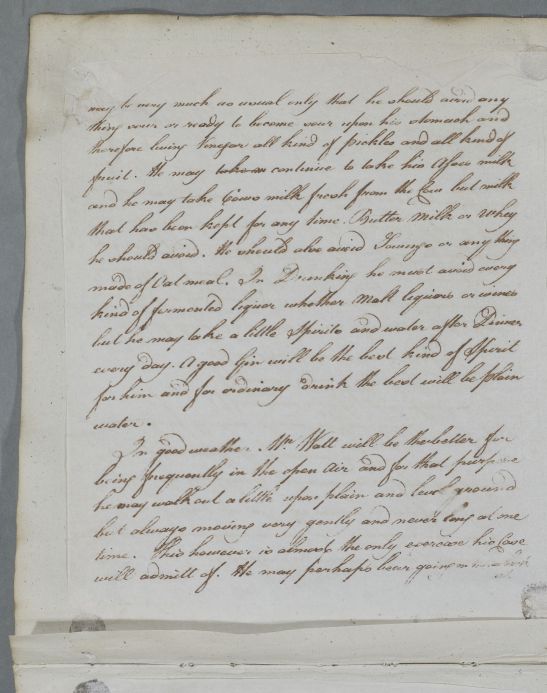 may be very much as usual only that he should avoid any
thing sour or ready to become sour upon his stomach and
therefore living Vinegar all kind of pickles and all kind of
fruit. He may continue to take his Asses milk
and he may take Cows milk fresh from the Cow but milk
that has been kept for any time. Butter Milk or Whey
he should avoid. He should also avoid or any thing
made of Oat meal. In Drinking he must avoid every
kind of fermented liquor whether Malt liquors or wines
but he may take a little Spirits and water after Dinner
every day. A good Gin will be the best kind of Spirit
for him and for ordinary drink the best will be plain
water.
In good weather Mr. Wall will be the better for
being frequently in the open Air and for that purpose
he may walk out a little upon plain and level ground
but always moving very gently and never long at one
time. This however is almost the only exercise his Case
will admitt of. He may perhaps bear going in